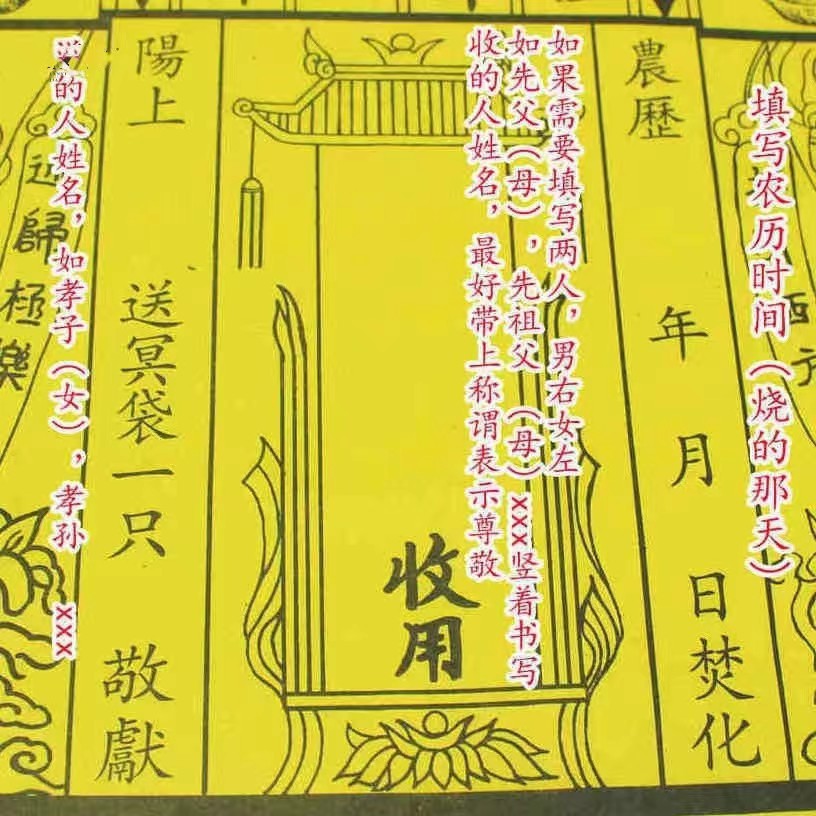 填写农历时间（烧的那天）
西
農歷 年 月 日焚化
如果需要填写两人，男右女左
如先父（母），先祖父（母）xxx竖着书写
收的人姓名，最好带上称谓表示尊敬
收用
陽上 送冥袋一只 敬獻
的人姓名，如孝子（女），孝孙 xxx
歸極樂